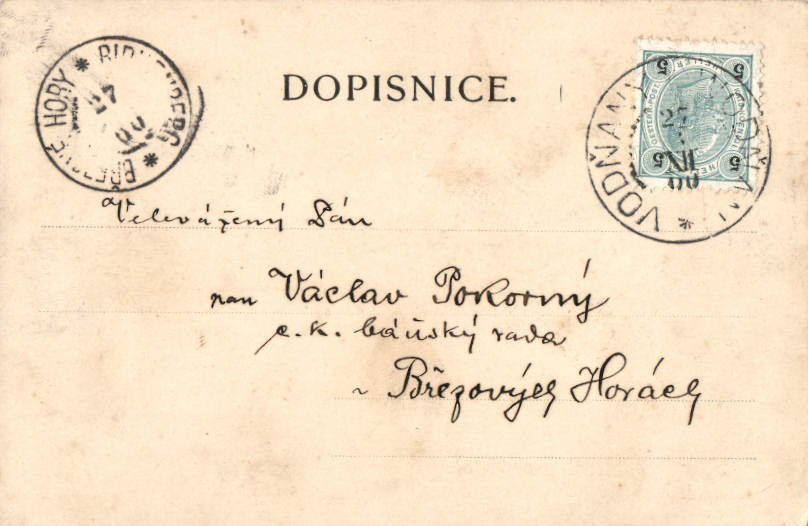 DOPISNICE.
BŘEZOVÉ HORY * BIRKENBERG *
00
VODŇANY * VODŇANY *
27
00
5 HELLER 5
OESTERR. POST
5 5
Velevážený Pán
pan Václav Pokorný
c. k. báňský rada
v Březových Horách